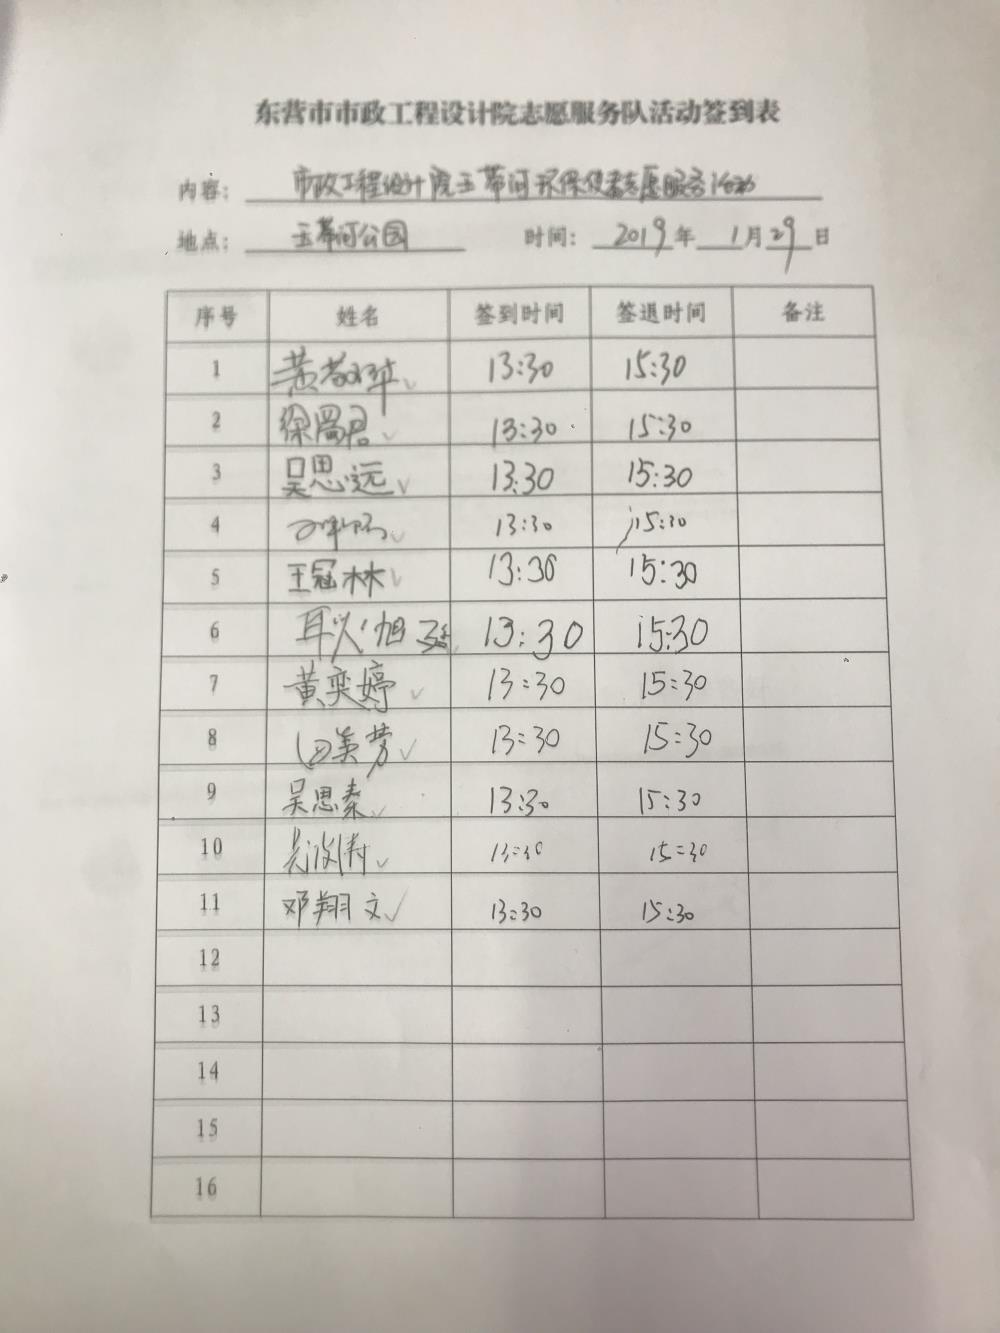 东营市市政工程设计院志愿服务队活动签到表
内容: 市政工程设计院玉带河环保使者志愿服务活动
地点: 玉带河公园 时间: 2019年 1月29日
序号 姓名 签到时间 签退时间 备注
1 13:30 15:30
2 13:30 15:30
3 吴思远 13:30 15:30
4 13:30 15:30
5 王冠林 13:30 15:30
6 13:30 15:30
7 黄奕婷 13:30 15:30
8 田美芳 13:30 15:30
9 吴思秦 13:30 15:30
10 13:30 15:30
11 邓翔文 13:30 15:30
12
13
14
15
16